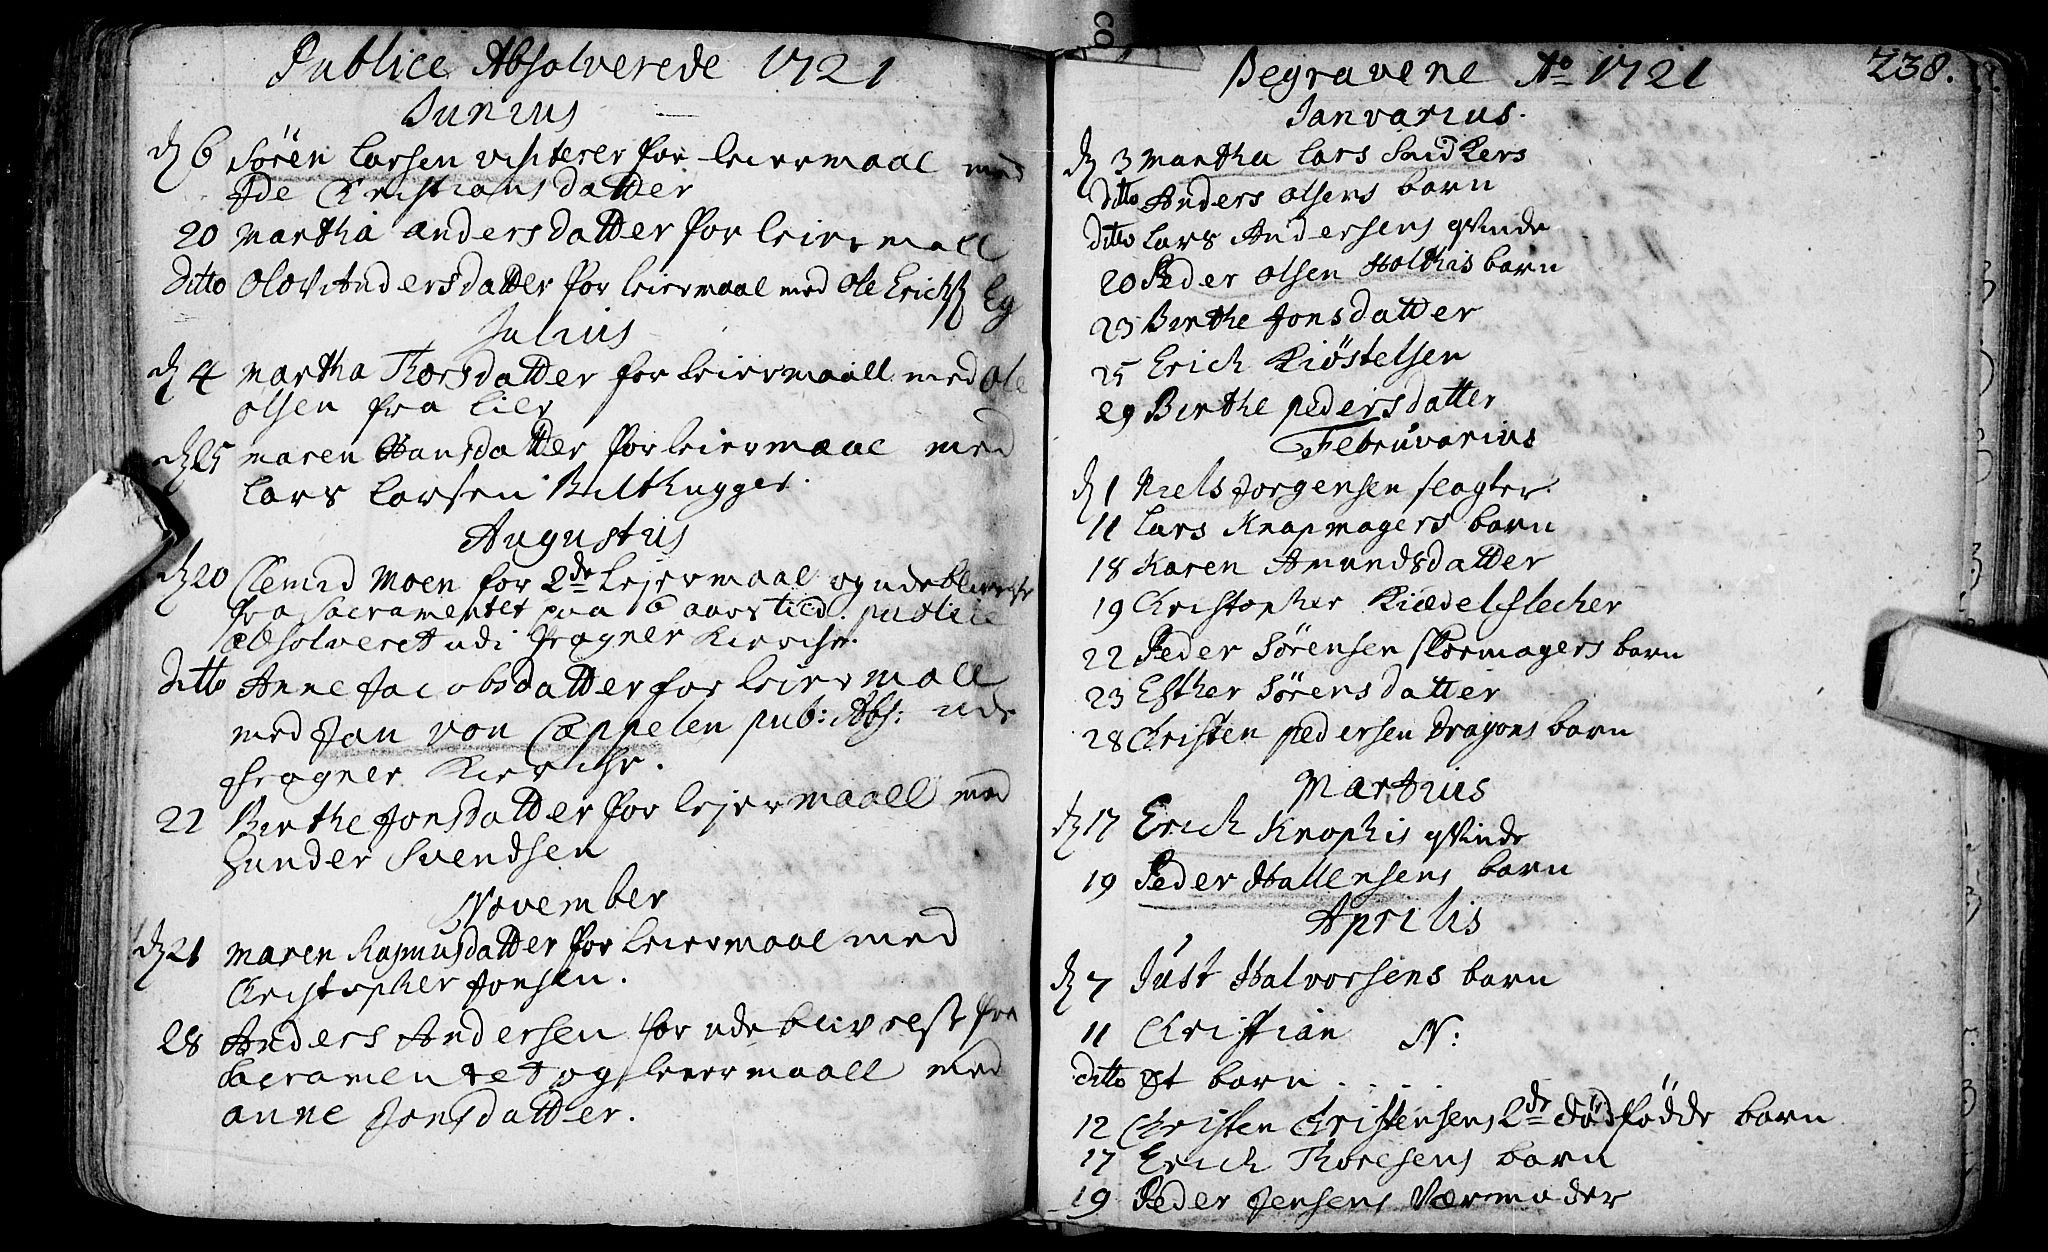 Publice Absolverede 1721
Junius
d 6 Sören Larsen visiterer for leiermaal med
Ide Christiansdatter
20 Martha Andersdatter for leiermall
Ditto Olov Andersdatter for leiermaal med Ole Erichß Eg
Julius
d 4 Martha Thorsdatter for leiermaall med Ole
olsen fra Lier
d 25 Maren Hansdatter for leiermaal med
Lars Larsen Bilthugger.
Augustus
d 20 Clemed Moen for 2de Lejermaal og udeblivelse
fra sacramentet paa 6 aars tiid. publice
absolveret udi Fragner Kierche.
Ditto Anne Jacobsdatter for leiermall
med Jan von Cappelen pub: Abs: ude
Fragner Kierche.
22 Berthe Jonsdatter for lejermaall med
Gunder Svendsen
November
d 21 Maren Rasmusdatter for leiermaal med
Christopher Jonsen.
28 Anders Andersen for udeblivelse fra
Sacramentet og leiermaall med
anne Jonsdatter.
Begravene Ao 1721
238.
Januarius.
d 3 Martha Lars Snidkers
ditto Anders olsens barn
ditto Lars Andersens qvinde
20 Peder olsen Holthis barn
23 Berthe Jonsdatter
25 Erich Kiöstelsen
29 Berthe pedersdatter
Februvarius
d 1 Niels Jorgensen slagter
11 Lars Knapmagers barn
18 Karen Amundsdatter
19 Christopher Kiædelflecher
22 Peder Sörensen skormagers barn
23 Esther Sörensdatter
28 Christen pedersen Dragons barn
Martius
d 17 Erich Knophis qvinde
19 Peder Hallensens barn
Aprilis
d 7 Just Halvorsens barn
11 Christian N:
ditto Et barn . . . .
12 Christen Christensens 2de dödfödde barn
17 Erich Thoresens barn
19 Peder Jensens Værmoder